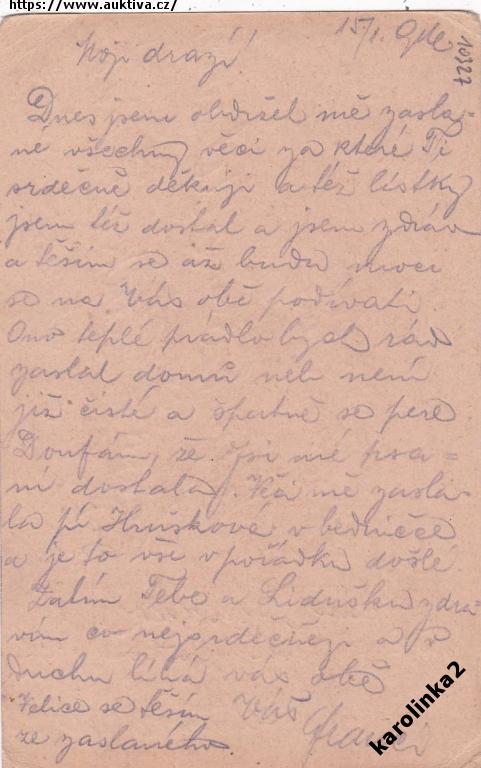 https://www.auktiva.cz/
15/1.
10327
Moji drazí!
Dnes jsem obdržel mě zasla-
né všechny věci za které Ti
srdečně děkuji a též lístky
jsem též dostal a jsem zdráv
a těším se až budu moci
se na Vás obě podívati.
Ono teplé prádlo bych rád
zaslal domů neb není
již čisté a špatně se pere
Doufám, že jsi mé psa-
ní dostala. mě zasla-
la pí Hrušková v bedničce
a je to vše v pořádku došlé.
Zatím Tebe a Lidušku zdra-
vím co nejsrdečněji a v
duchu líbá vás obě
Velice se těším Váš
ze zaslaného.
karolinka2